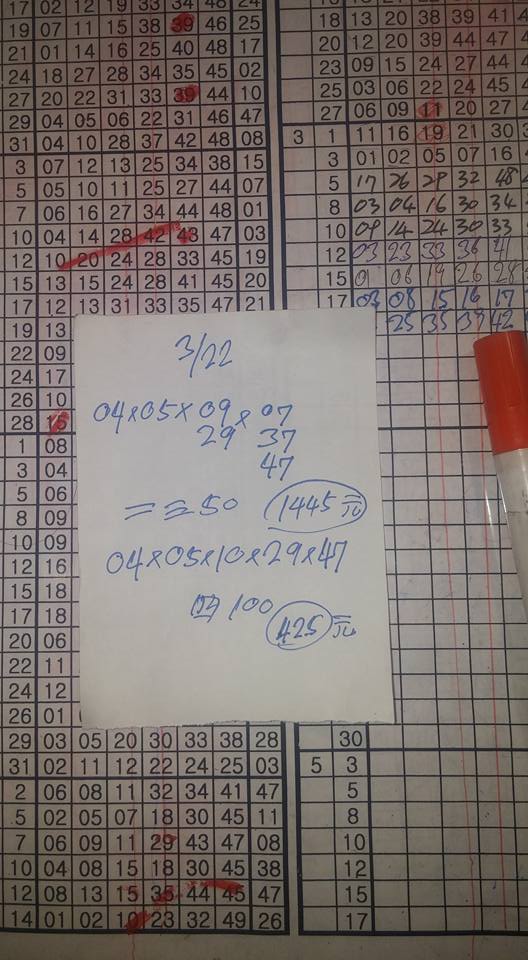 17 02 12 19 33 34 48 24
19 07 11 15 38 39 46 25
21 01 14 16 25 40 48 17
24 18 27 28 34 35 45 02
27 20 22 31 33 39 44 10
29 04 05 06 22 31 46 47
31 04 10 28 37 42 48 08
3 07 12 13 25 34 38 15
5 05 10 11 25 27 44 07
7 06 16 27 34 44 48 01
10 04 14 28 42 43 47 03
12 10 20 24 28 33 45 19
15 13 15 24 28 41 45 20
17 12 13 31 33 35 47 21
19 13
22 09
24 17
26 10
28 15
1 08
3 04
5 06
8 09
10 09
12 16
15 18
17 18
20 06
22 11
24 12
26 01
29 03 05 20 30 33 38 28
31 02 11 12 22 24 25 03
2 06 08 11 32 34 41 47
5 02 05 07 18 30 45 11
7 06 09 11 29 43 47 08
10 04 08 15 18 30 45 38
12 08 13 15 35 44 45 47
14 01 02 10 23 32 49 26
18 13 20 38 39 41
20 12 20 39 44 47
23 09 15 24 27 44
25 03 06 22 24 45
27 06 09 11 20 27
3 1 11 16 19 21 30
3 01 02 05 07 16
5 17 26 28 32 48
8 03 04 16 30 34
10 09 14 24 30 33
12 03 23 33 36 41
15 01 06 19 26 28
17 03 08 15 16 17
25 35 39 42
30
5 3
5
8
10
12
15
17
3/22
04×05×09×07
29 37
47
=≡50 1445元
04×05×10×29×47
四100
425元